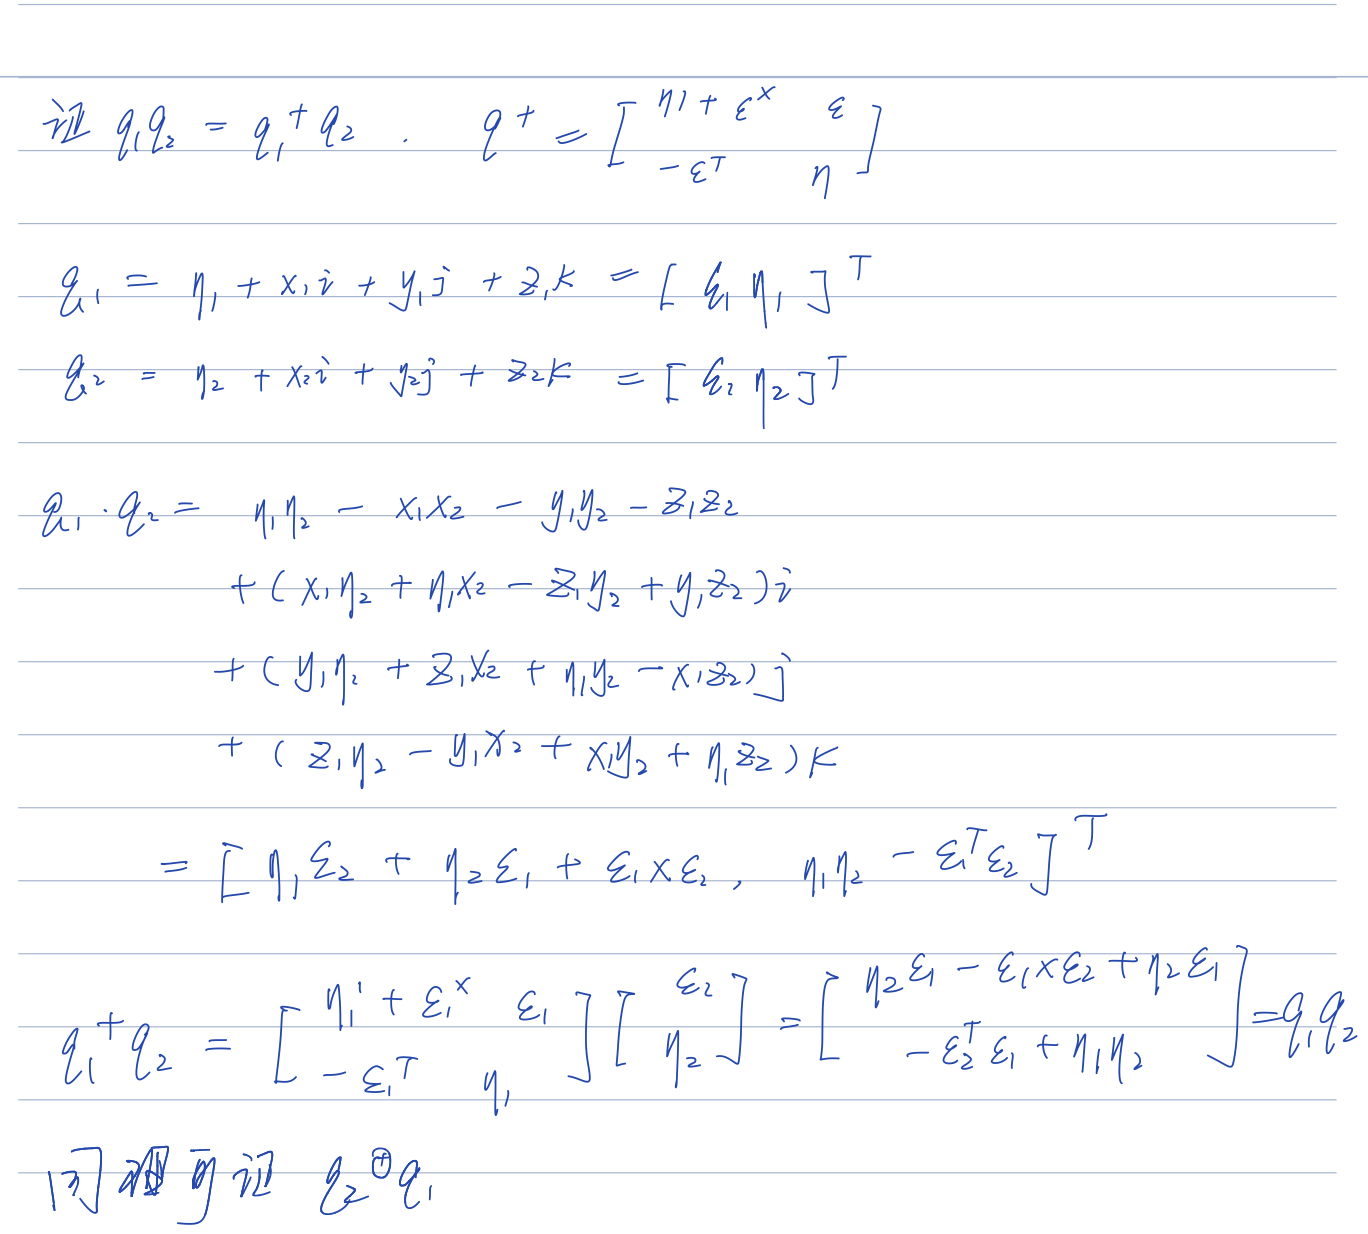 证 q₁q₂ = q₁⁺q₂ . q⁺ = [ η1 + ε^× ε ; -ε^T η ]
q₁ = η₁ + x₁i + y₁j + z₁k = [ ε₁ η₁ ]^T
q₂ = η₂ + x₂i + y₂j + z₂k = [ ε₂ η₂ ]^T
q₁ · q₂ = η₁η₂ - x₁x₂ - y₁y₂ - z₁z₂
+ ( x₁η₂ + η₁x₂ - z₁y₂ + y₁z₂ ) i
+ ( y₁η₂ + z₁x₂ + η₁y₂ - x₁z₂ ) j
+ ( z₁η₂ - y₁x₂ + x₁y₂ + η₁z₂ ) k
= [ η₁ε₂ + η₂ε₁ + ε₁×ε₂ , η₁η₂ - ε₁^Tε₂ ]^T
q₁⁺q₂ = [ η₁1 + ε₁^× ε₁ ; -ε₁^T η₁ ] [ ε₂ ; η₂ ] = [ η₂ε₁ - ε₁×ε₂ + η₂ε₁ ; -ε₂^Tε₁ + η₁η₂ ] = q₁q₂
同理可证 q₂^⊕q₁